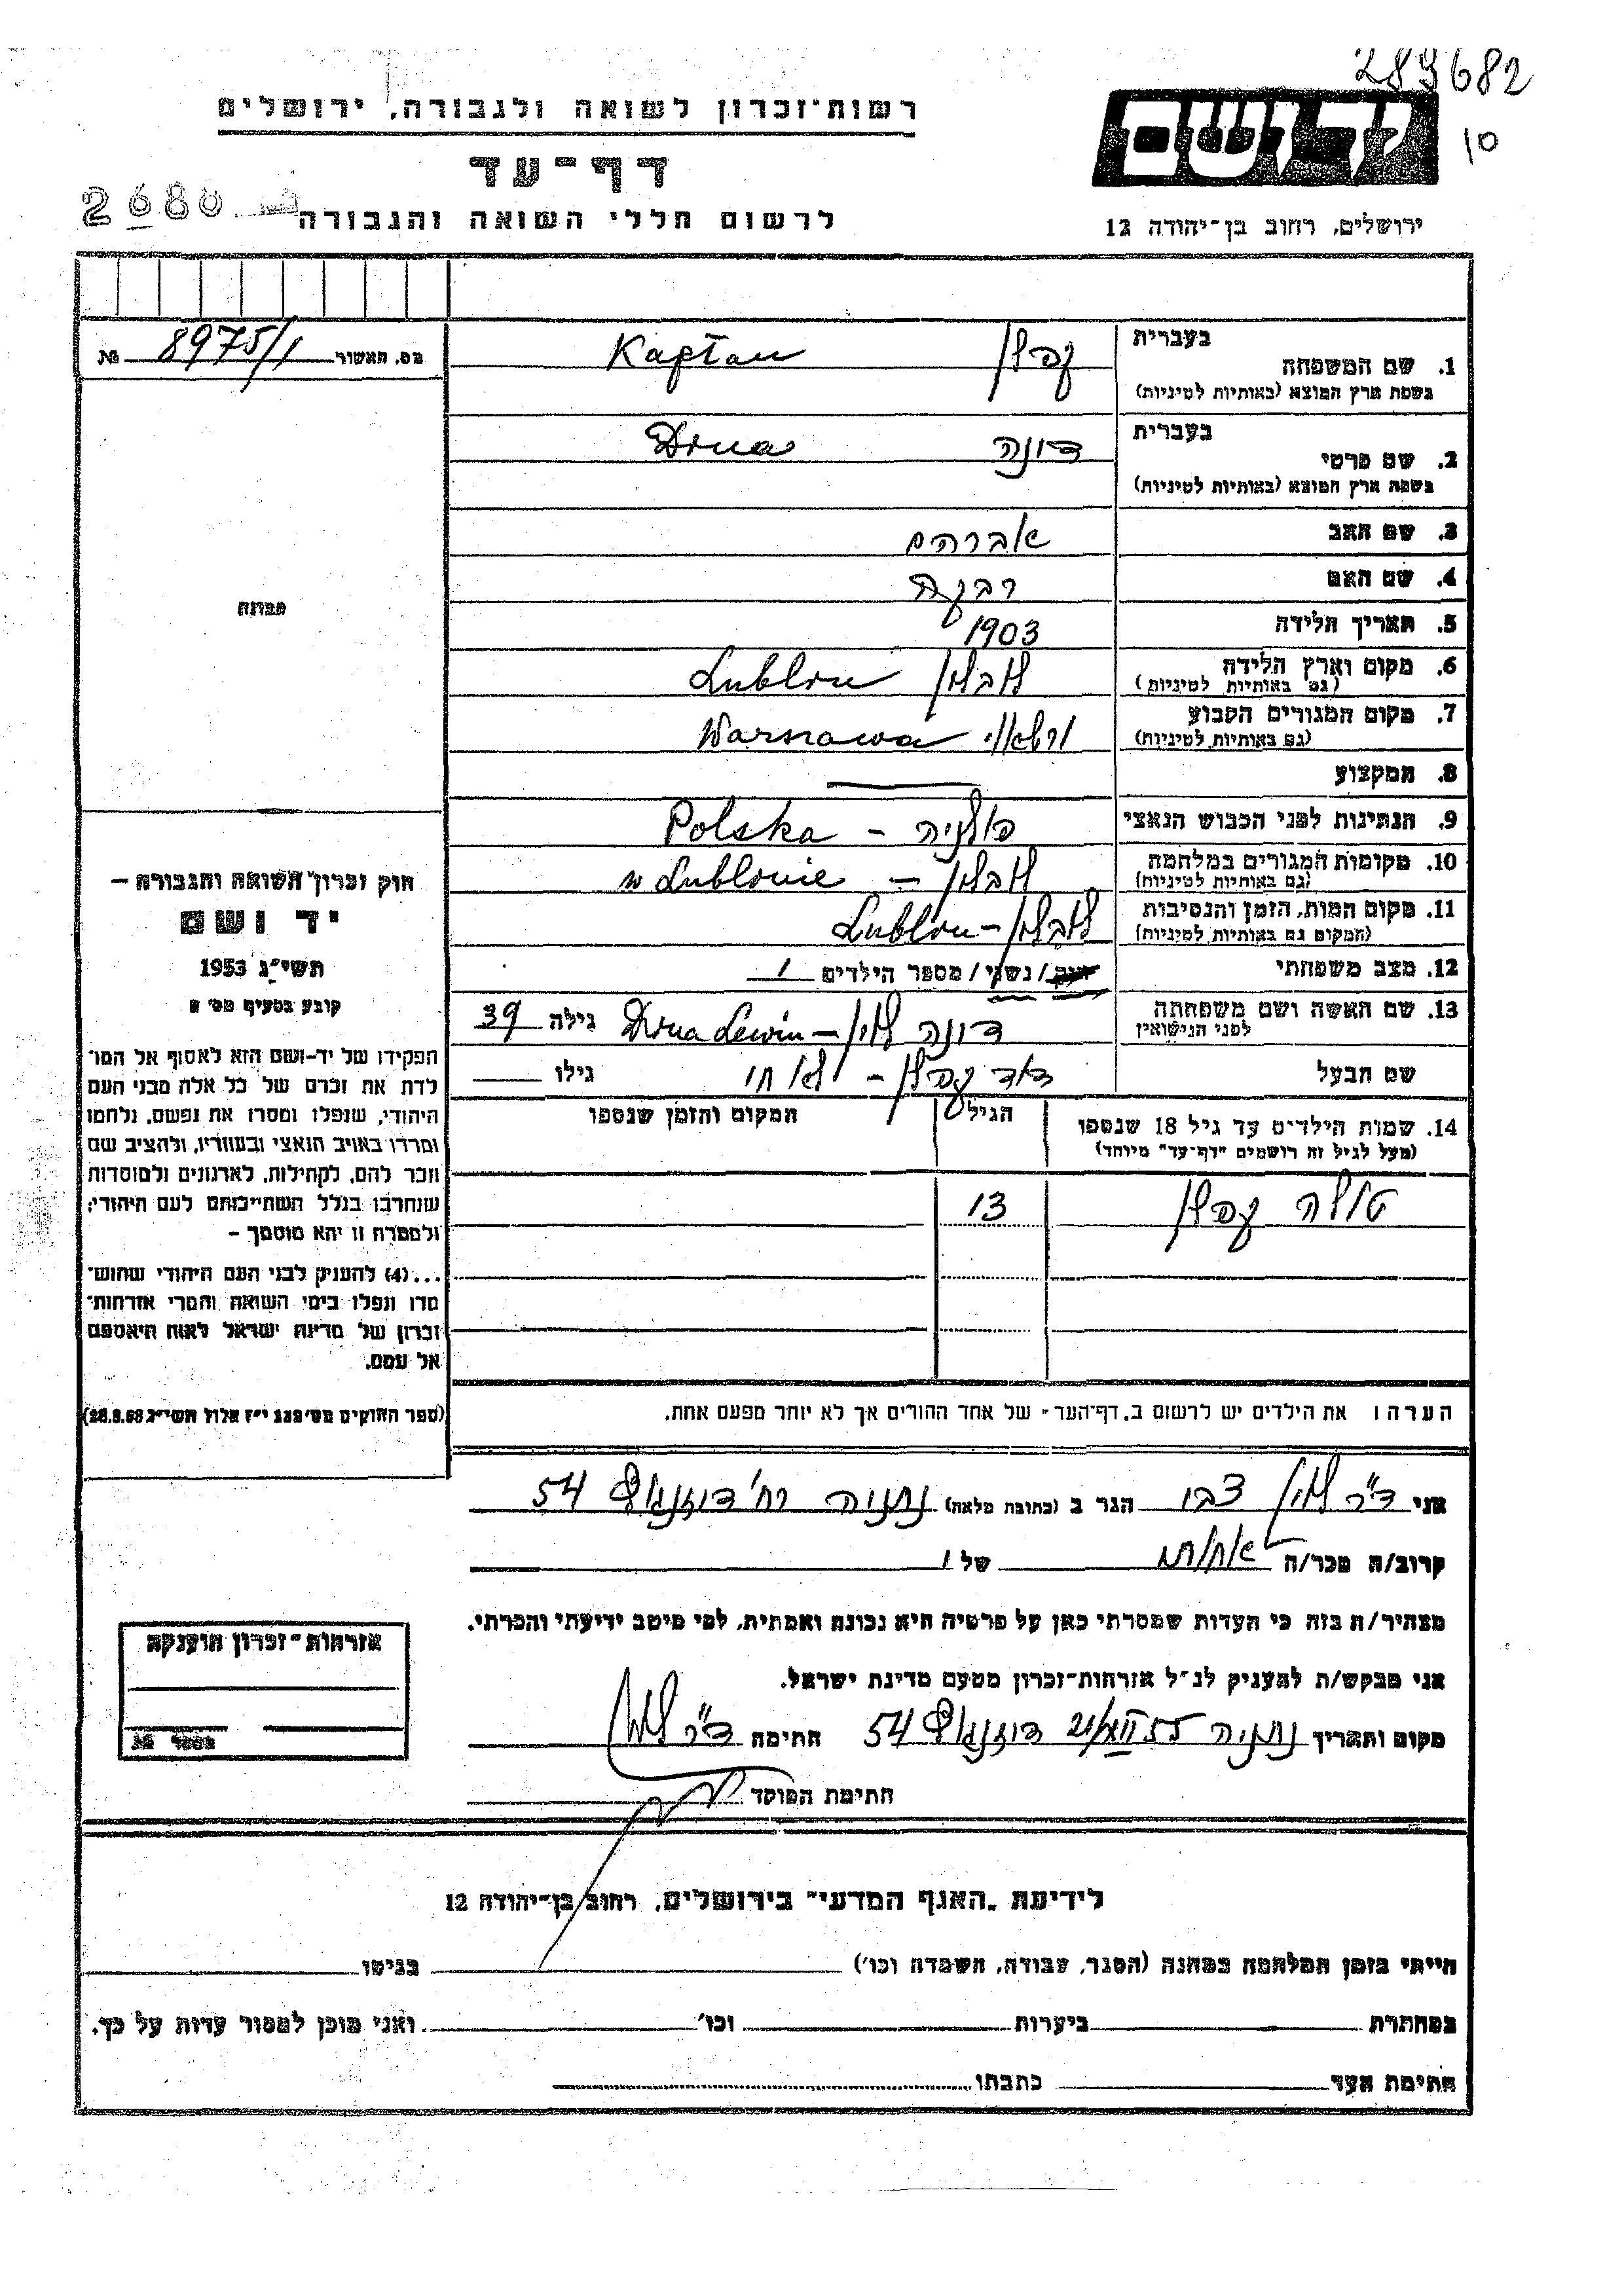 289682
יד ושם
10
רשות־זכרון לשואה ולגבורה, ירושלים
דף־עד
לרשום חללי השואה והגבורה
2680
ירושלים, רחוב בן־יהודה 12
מס. האשור 8975/1 №
בעברית
1. שם המשפחה קפלן Kapłan
בשפת ארץ המוצא (באותיות לטיניות)
בעברית
2. שם פרטי דונה Dona
בשפת ארץ המוצא (באותיות לטיניות)
3. שם האב אברהם
4. שם האם רבקה
5. תאריך הלידה 1903
6. מקום וארץ הלידה לובלין Lublin
(גם באותיות לטיניות)
7. מקום המגורים הקבוע Warszawa
(גם באותיות לטיניות)
8. המקצוע —
9. הנתינות לפני הכבוש הנאצי פולניה - Polska
10. מקומות המגורים במלחמה לובלין - w Lublinie
(גם באותיות לטיניות)
11. מקום המות, הזמן והנסיבות לובלין - Lublin
(המקום גם באותיות לטיניות)
12. מצב משפחתי רוק/נשוי/מספר הילדים 1
13. שם האשה ושם משפחתה דונה לוין - Dona Lewin גילה 39
לפני הנישואין
שם הבעל דוד קפלן - לא חי גילו
14. שמות הילדים עד גיל 18 שנספו הגיל המקום והזמן שנספו
(מעל לגיל זה רושמים "דף־עד" מיוחד)
טולה קפלן 13
הערה: את הילדים יש לרשום ב"דף־העד" של אחד ההורים אך לא יותר מפעם אחת.
תמונה
חוק זכרון השואה והגבורה –
יד ושם
תשי"ג 1953
קובע בסעיף מס' 2
תפקידו של יד־ושם הוא לאסוף אל המו־
לדת את זכרם של כל אלה מבני העם
היהודי, שנפלו ומסרו את נפשם, נלחמו
ומרדו באויב הנאצי ובעוזריו, ולהציב שם
וזכר להם, לקהילות, לארגונים ולמוסדות
שנחרבו בגלל השתייכותם לעם היהודי;
ולמטרה זו יהא מוסמך –
...(4) להעניק לבני העם היהודי שהוש־
מדו ונפלו בימי השואה והמרי אזרחות־
זכרון של מדינת ישראל לאות היאספם
אל עמם.
אני ד"ר לוין צבי הגר ב (כתובת מלאה) נתניה רח' דיזנגוף 54
קרוב/ה מכר/ה של:
מצהיר/ה בזה כי העדות שמסרתי כאן על פרטיה היא נכונה ואמתית, לפי מיטב ידיעתי והכרתי.
אני מבקש/ת להעניק לנ"ל אזרחות־זכרון מטעם מדינת ישראל.
מקום ותאריך נתניה דיזנגוף 54 חתימה ד"ר לוין
חתימת הפוקד
אזרחות־זכרון הוענקה
לידיעת "האגף המדעי" בירושלים, רחוב בן־יהודה 12
הייתי בזמן המלחמה במחנה (הסגר, עבודה, השמדה וכו') בגיטו
במחתרת ביערות וכו' ואני מוכן למסור עדות על כך.
חתימת העד כתבתו